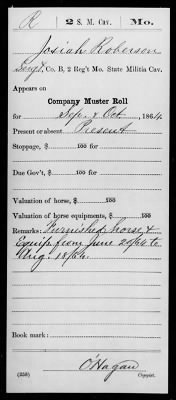 R 2 S. M. Cav. Mo.
Josiah Roberson
Sergt, Co. B, 2 Reg't Mo. State Militia Cav.
Appears on
Company Muster Roll
for Sep. & Oct, 1864
Present or absent Present
Stoppage, $ 100 for
Due Gov't, $ 100 for
Valuation of horse, $ 100
Valuation of horse equipments, $ 100
Remarks: Furnished horse &
Equip. from June 20/64 to
Aug. 18/64.
Book mark:
O'Hagan
(358) Copyist.